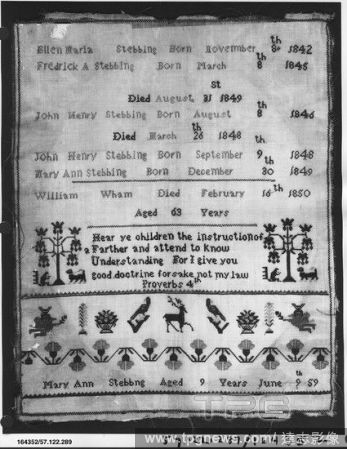 th
Ellen Maria Stebbing Born November 8 1842
th
Fredrick A Stebbing Born March 8 1845
St
Died August 31 1849
th
John Henry Stebbing Born August 8 1846
th
Died March 26 1848
th
John Henry Stebbing Born September 9 1848
Mary Ann Stebbing Born December 30 1849
th
William Wham Died February 16 1850
Aged 63 Years
Hear ye children the instruction of
a Farther and attend to Know
Understanding For I give you
good doctrine forsake not my law
Proverbs 4th
th
Mary Ann Stebbng Aged 9 Years June 9 59
TPG
164352/57.122.289
www.tpgimages.com 達志影像